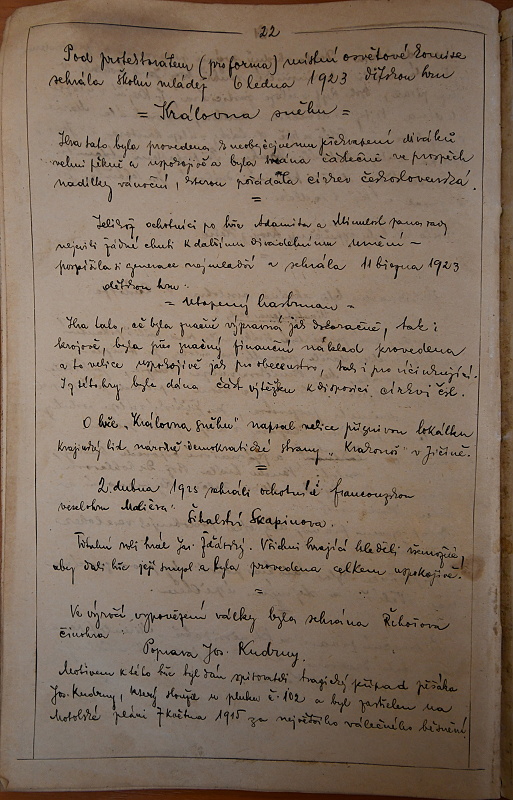 22
Pod protektorátem (pro forma) místní osvětové komise
sehrála školní mládež 6 ledna 1923 dětskou hru
= Královna sněhu =
Hra tato byla provedena k neobyčejnému překvapení diváků
velmi pěkně a uspokojivě a byla hrána částečně ve prospěch
nadílky vánoční, kterou pořádala církev československá.
=
Jelikož ochotníci po hře Adamita a Milencové
nejevili žádné chuti k dalšímu divadelnímu umění –
pospíšila si generace nejmladší a sehrála 11 března 1923
dětskou hru
= Utopený hastrman =
Hra tato, ač byla značně výpravná jak dekoračně, tak i
krojově, byla přes značný finanční náklad provedena
a to velice uspokojivě jak pro obecenstvo, tak i pro účinkující.
Iz této hry byla dána část výtěžku k disposici církvi čsl.
O hře „Královna sněhu" napsal velice příznivou lokálku
krajinský list národně-demokratické strany „Krakonoš" v Jičíně.
=
2. dubna 1923 sehráli ochotníci francouzskou
veselohru Molièra
Šibalství Skapinova.
Titulní roli hrál Jos. Žďárský. Všichni hrající hleděli
aby dali hře její smysl a byla provedena celkem uspokojivě.
=
Ve výročí vypovězení války byla sehrána Řehořova
činohra
Poprava Jos. Kudrny.
Motivem k této hře byl dán tragický případ pěšáka
Jos. Kudrny, který sloužil u pluku č. 102 a byl zastřelen na
Motolské pláni 7 května 1915 za největšího válečného běsnění.